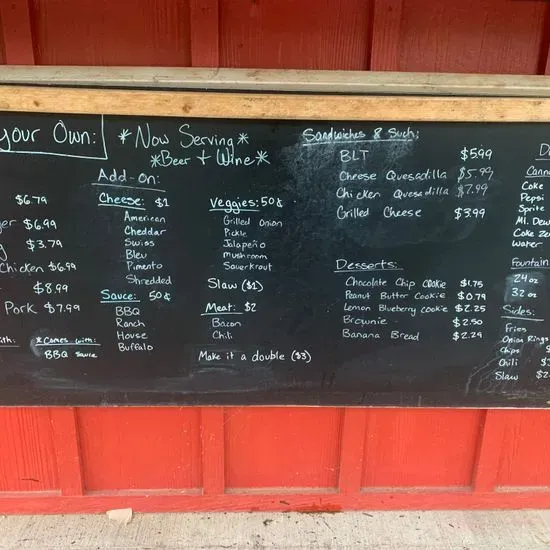 your Own:
$6.79
$6.99
$3.79
Chicken $6.99
$8.99
Pork $7.99
*Comes with:
BBQ Sauce
*Now Serving*
*Beer + Wine*
Add-on:
Cheese: $1
American
Cheddar
Swiss
Bleu
Pimento
Shredded
Sauce: 50¢
BBQ
Ranch
House
Buffalo
Veggies: 50¢
Grilled Onion
Pickle
Jalapeño
mushroom
Sauerkraut
Slaw ($1)
Meat: $2
Bacon
Chili
Make it a double ($3)
Sandwiches & Such:
BLT $5.99
Cheese Quesadilla $5.99
Chicken Quesadilla $7.99
Grilled Cheese $3.99
Desserts:
Chocolate Chip Cookie $1.75
Peanut Butter Cookie $0.79
Lemon Blueberry Cookie $2.25
Brownie $2.50
Banana Bread $2.29
Coke
Pepsi
Sprite
Mt. Dew
Coke Ze
Water
Fountain
24 oz
32 oz
Sides:
Fries
Onion Rings
Chips
Chili
Slaw $2